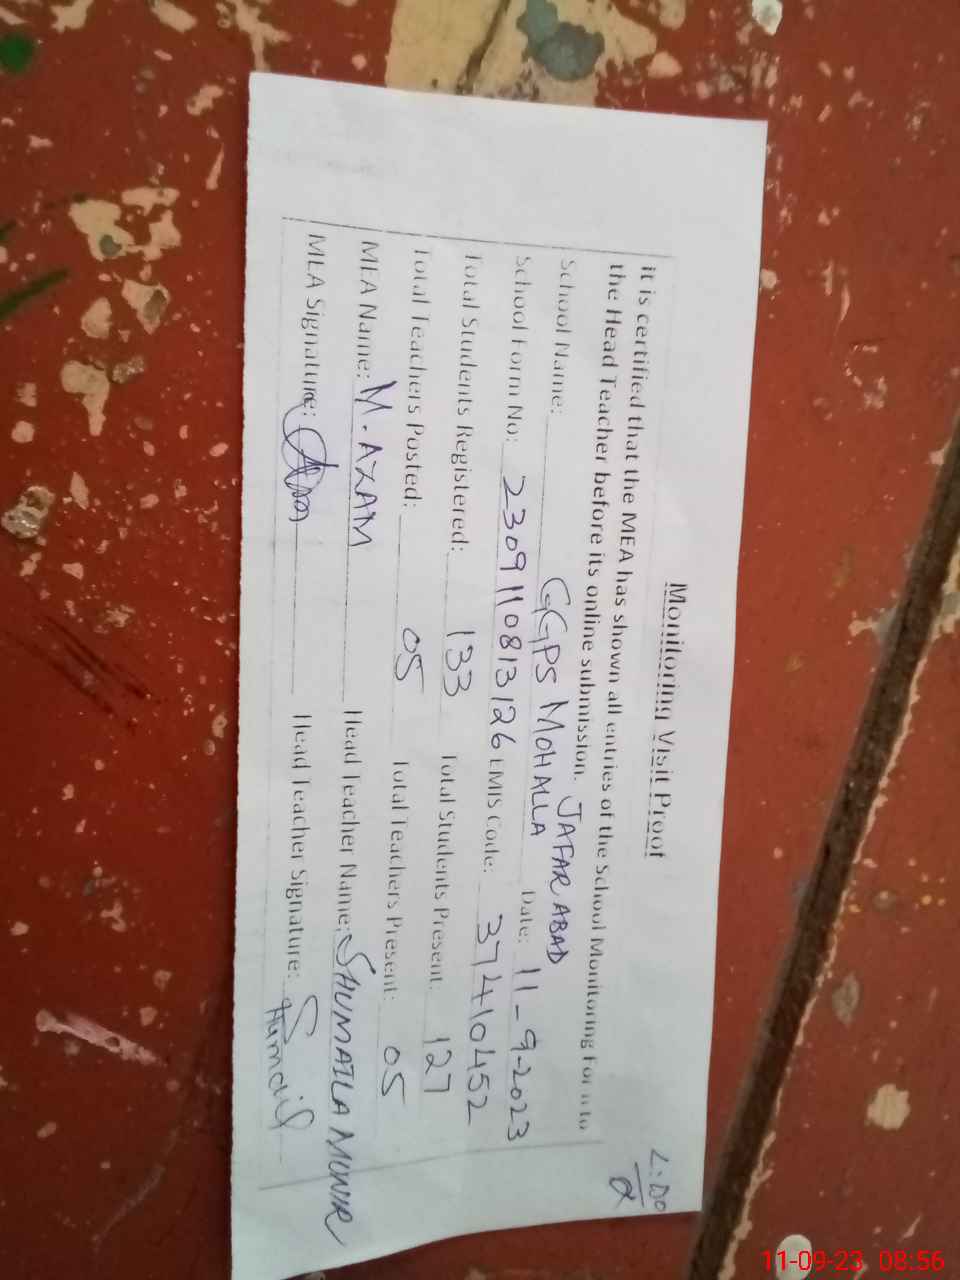 Monitoring Visit Proof
it is certified that the MEA has shown all entries of the School Monitoring Form to
the Head Teacher before its online submission.
School Name: GGPS MOHALLA JAFAR ABAD Date: 11-9-2023
School Form No: 2309110813126 EMIS Code: 37410452
Total Students Registered: 133 Total Students Present: 127
Total Teachers Posted: 05 Total Teachers Present: 05
MEA Name: M.AZAM Head Teacher Name: SHUMAILA MUNIR
MEA Signature: Head Teacher Signature:
11-09-23 08:56